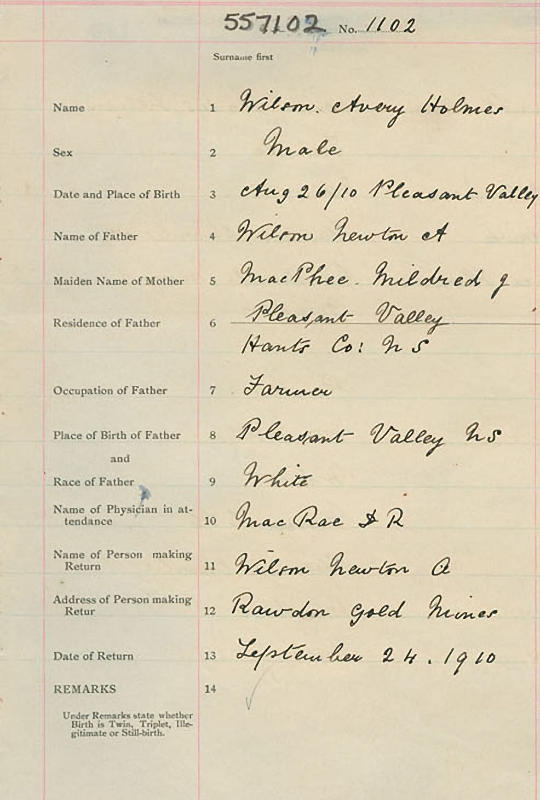 557102 No. 1102
Surname first
Name 1 Wilson. Avery Holmes
Sex 2 Male
Date and Place of Birth 3 Aug 26/10 Pleasant Valley
Name of Father 4 Wilson Newton A
Maiden Name of Mother 5 MacPhee. Mildred J
Residence of Father 6 Pleasant Valley
Hants Co: N S
Occupation of Father 7 Farmer
Place of Birth of Father 8 Pleasant Valley N S
and
Race of Father 9 White
Name of Physician in at-
tendance 10 MacRae D R
Name of Person making
Return 11 Wilson Newton A
Address of Person making
Retur 12 Rawdon Gold Mines
Date of Return 13 September 24. 1910
REMARKS 14
Under Remarks state whether
Birth is Twin, Triplet, Ille-
gitimate or Still-birth.